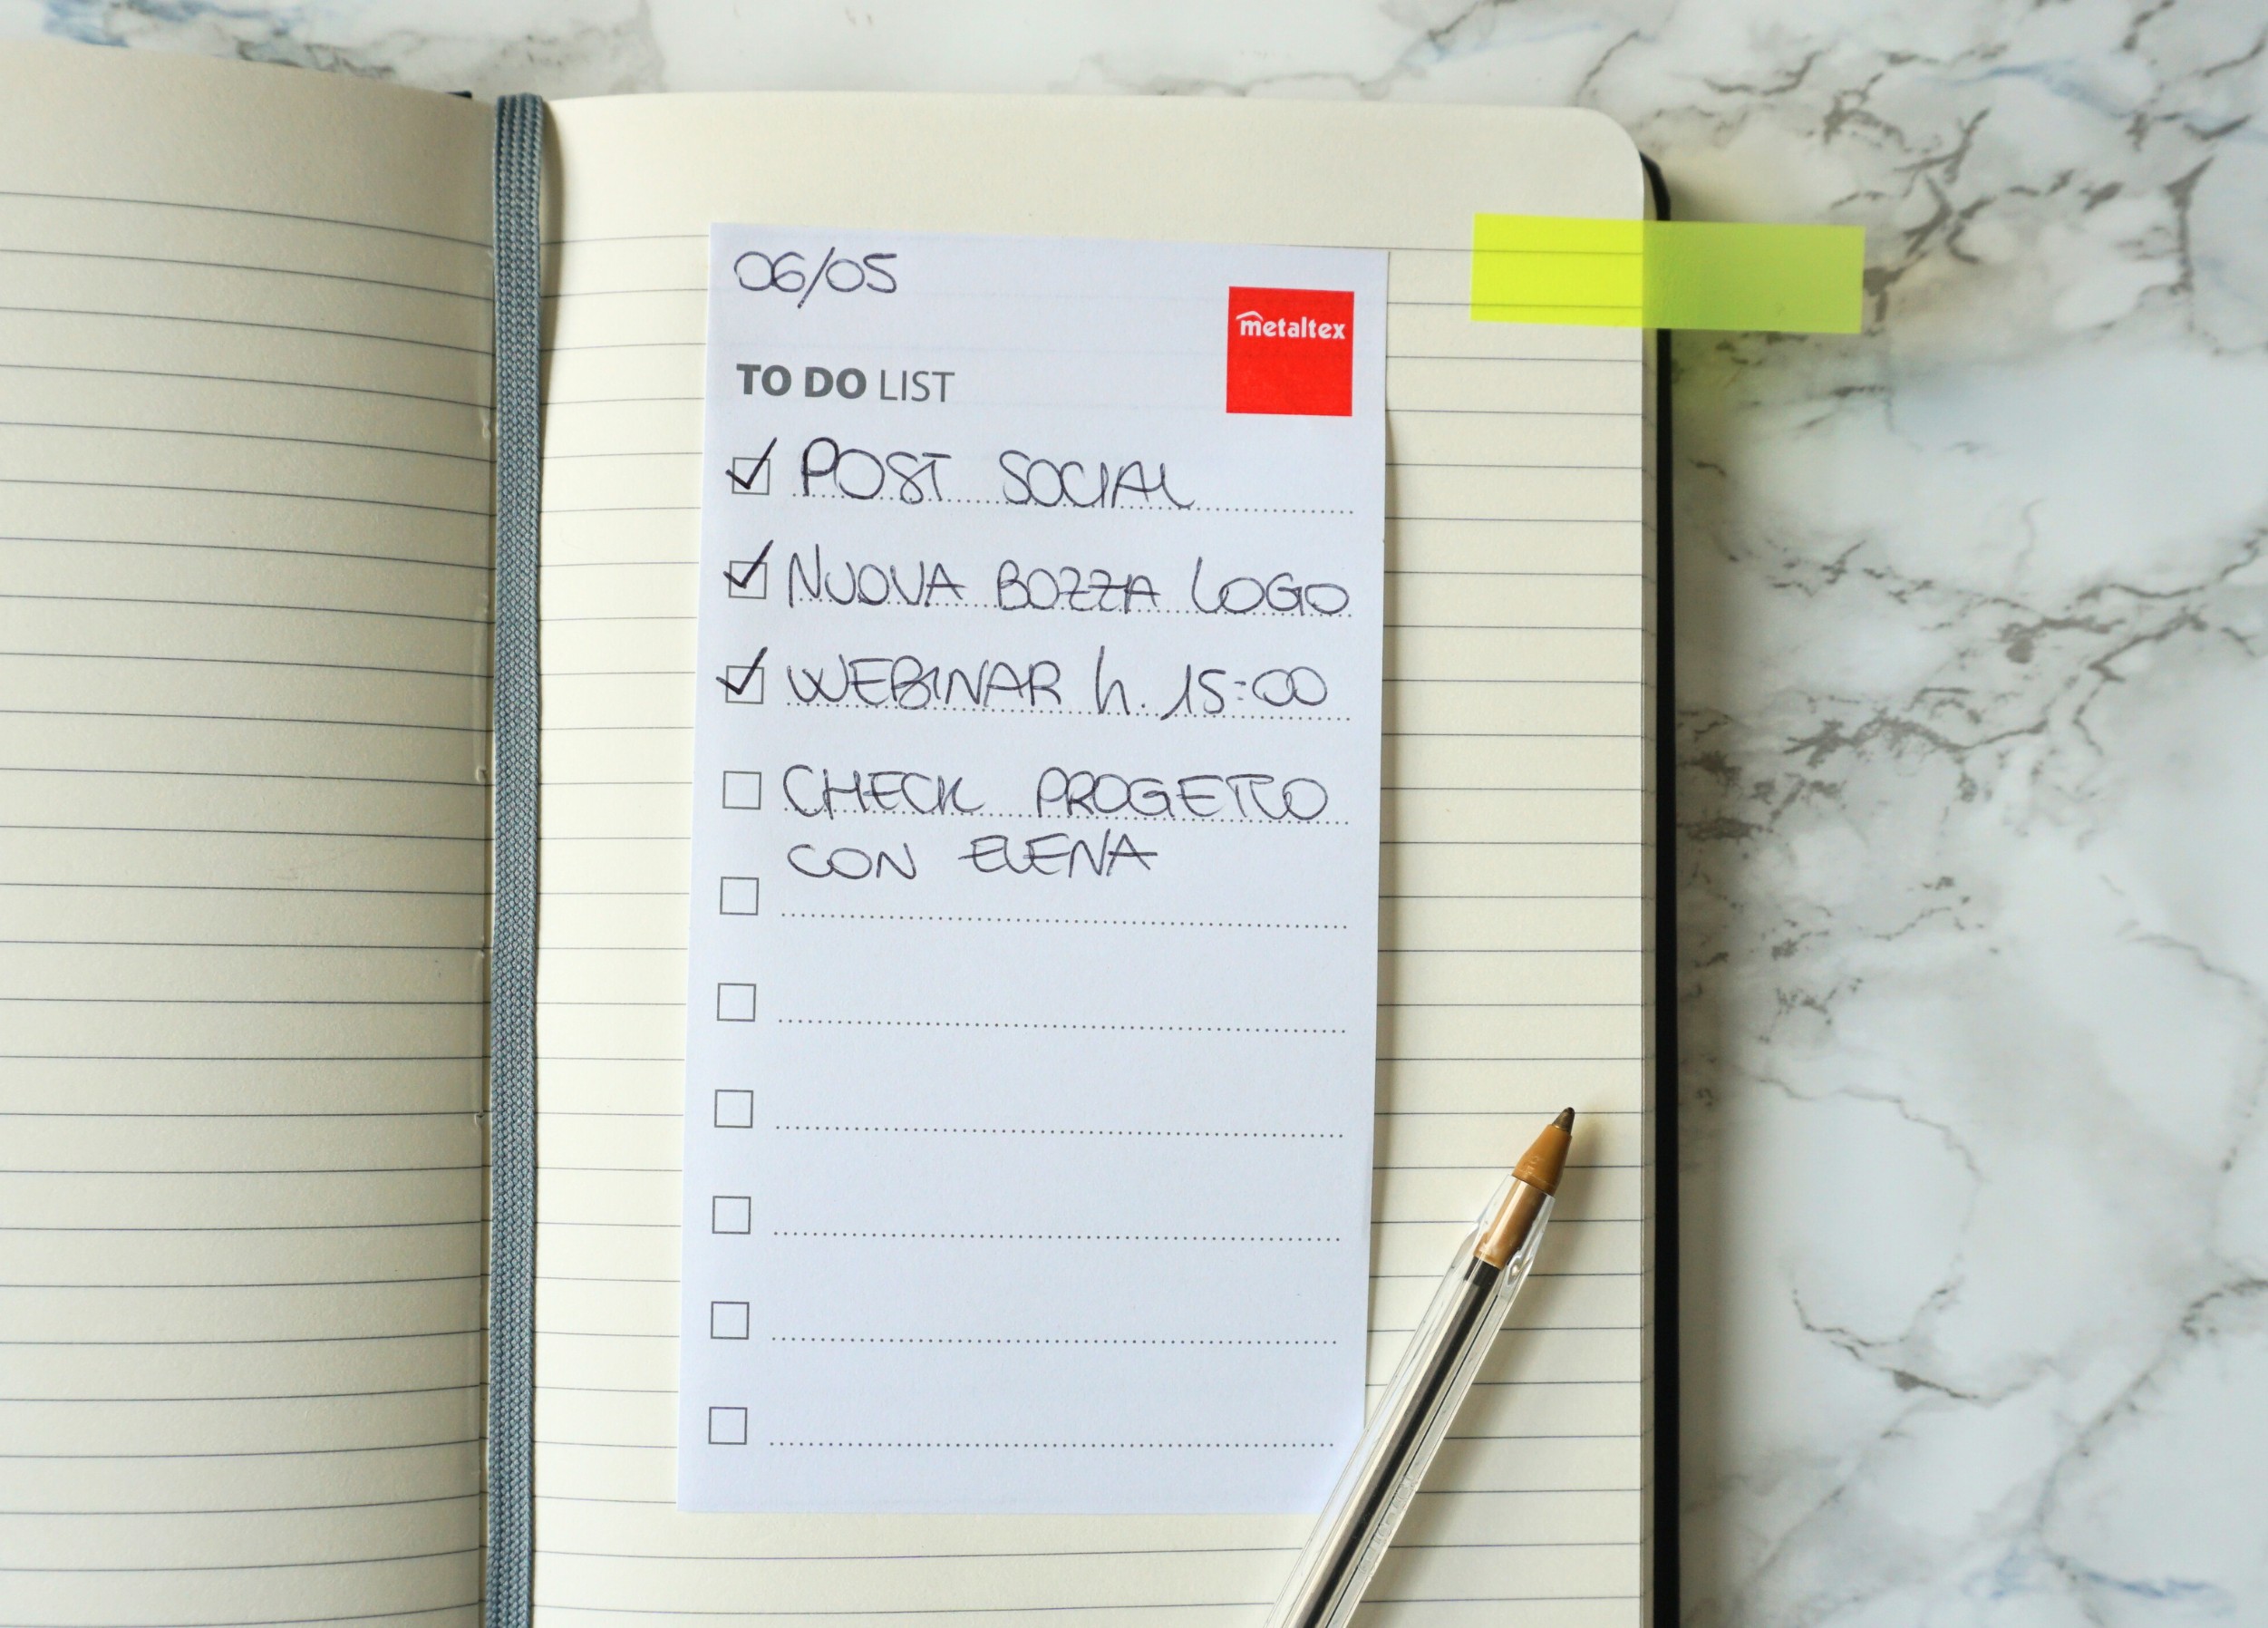 06/05
metaltex
TO DO LIST
POST SOCIAL
NUOVA BOZZA LOGO
WEBINAR h. 15:00
CHECK PROGETTO
CON ELENA